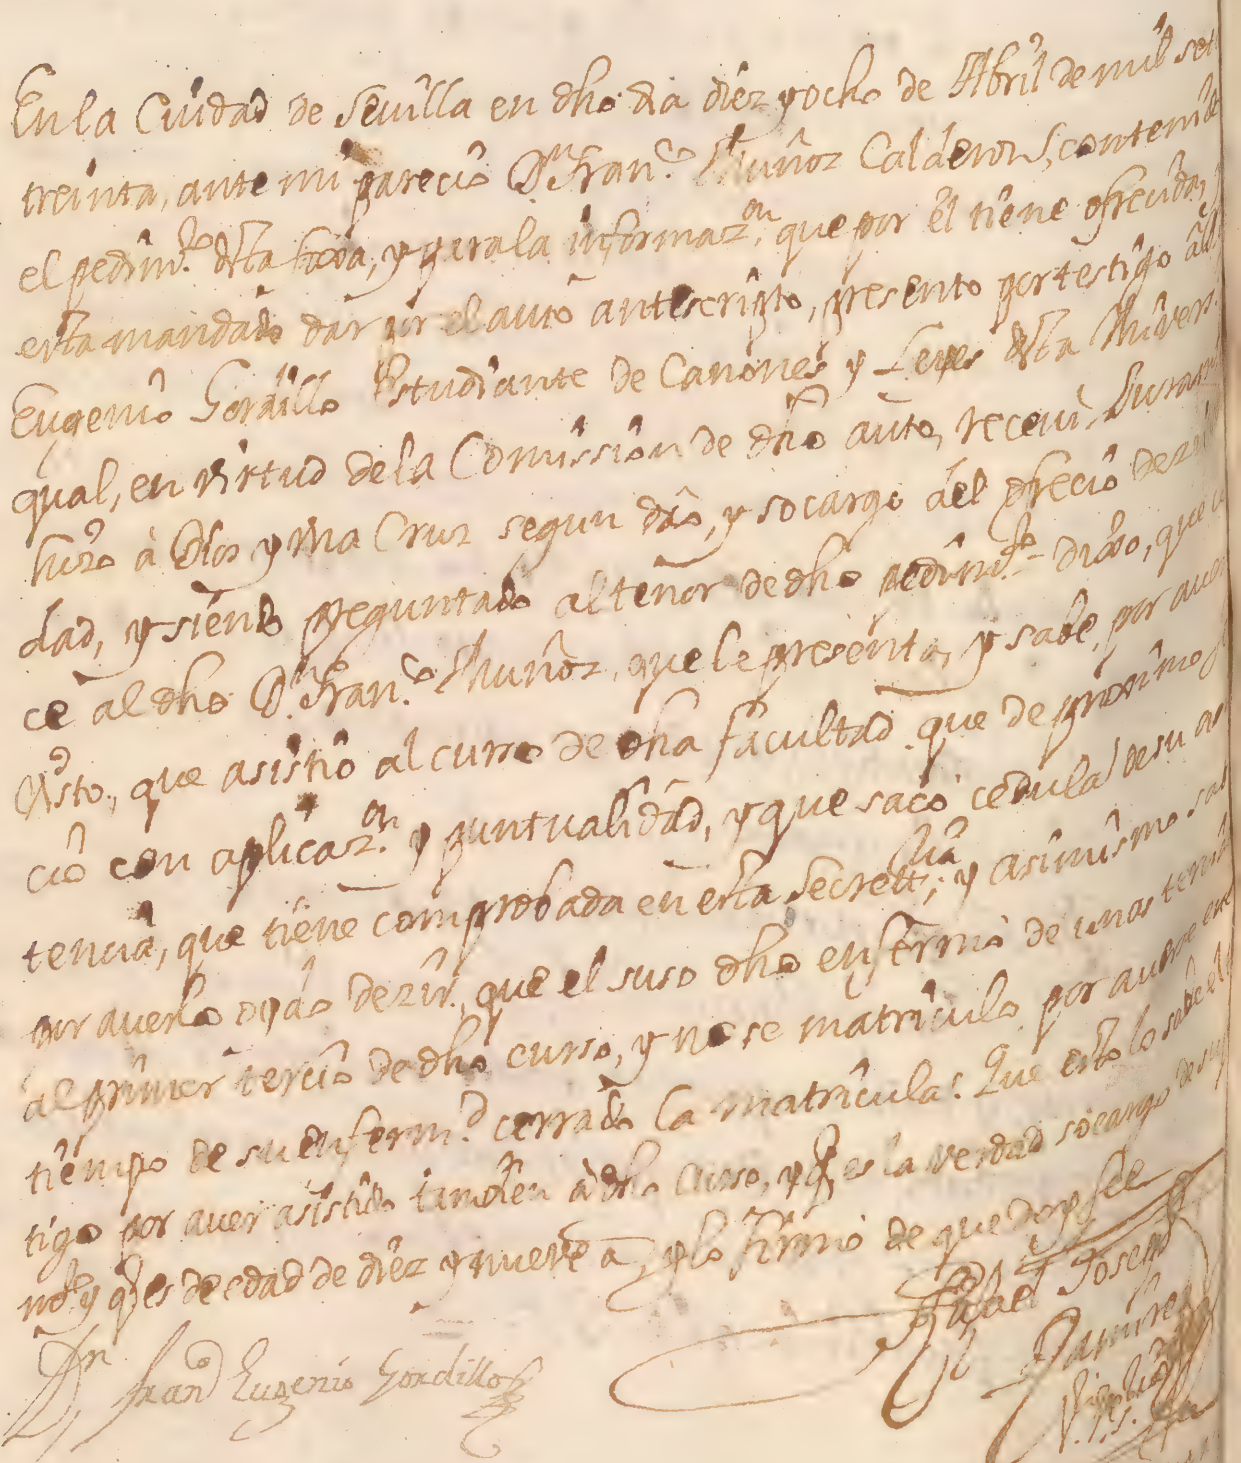 En la Ciudad de Sevilla en dho dia diez y ocho de Abril de mil set
treinta, ante mi parecio Dn. Franco. Muñoz Calderon, contenido
el pedimto. desta foxa, y para la informazon. que por él tiene ofrecida,
esta mandado dar por el auto antescripto, presento por testigo a
Eugenio Gordillo Estudiante de Canones y Leyes desta Univers.
qual, en virtud de la Comission de dho auto, recevi Juram
hizo à Dios y una Cruz segun dro, y so cargo del ofrecio dezir
dad, y siendo preguntado al tenor de dho pedimto. dixo, que co
ce al dho Dn. Franco. Muñoz, que le presenta, y sabe, por aver
visto, que asistio al curso de dha facultad que de proximo
cio con aplicazon. y puntualidad, y que sacó cedula de su as
tencia, que tiene comprobada en esta Secretria; y asimismo sab
por averlo oydo dezir, que el suso dho enfermó de unas
al primer tercio de dho curso, y no se matriculo por averse en
tiempo de su enfermd. cerrado la matricula: Que esto lo sabe el
tigo por aver asistido tambien a dho curso, y q es la verdad so cargo de su
y q es de edad de diez y nueve a, y lo firmó de que doy fee
Dn Frano Eugenio Gordillo
Rafael Joseph
Ramires